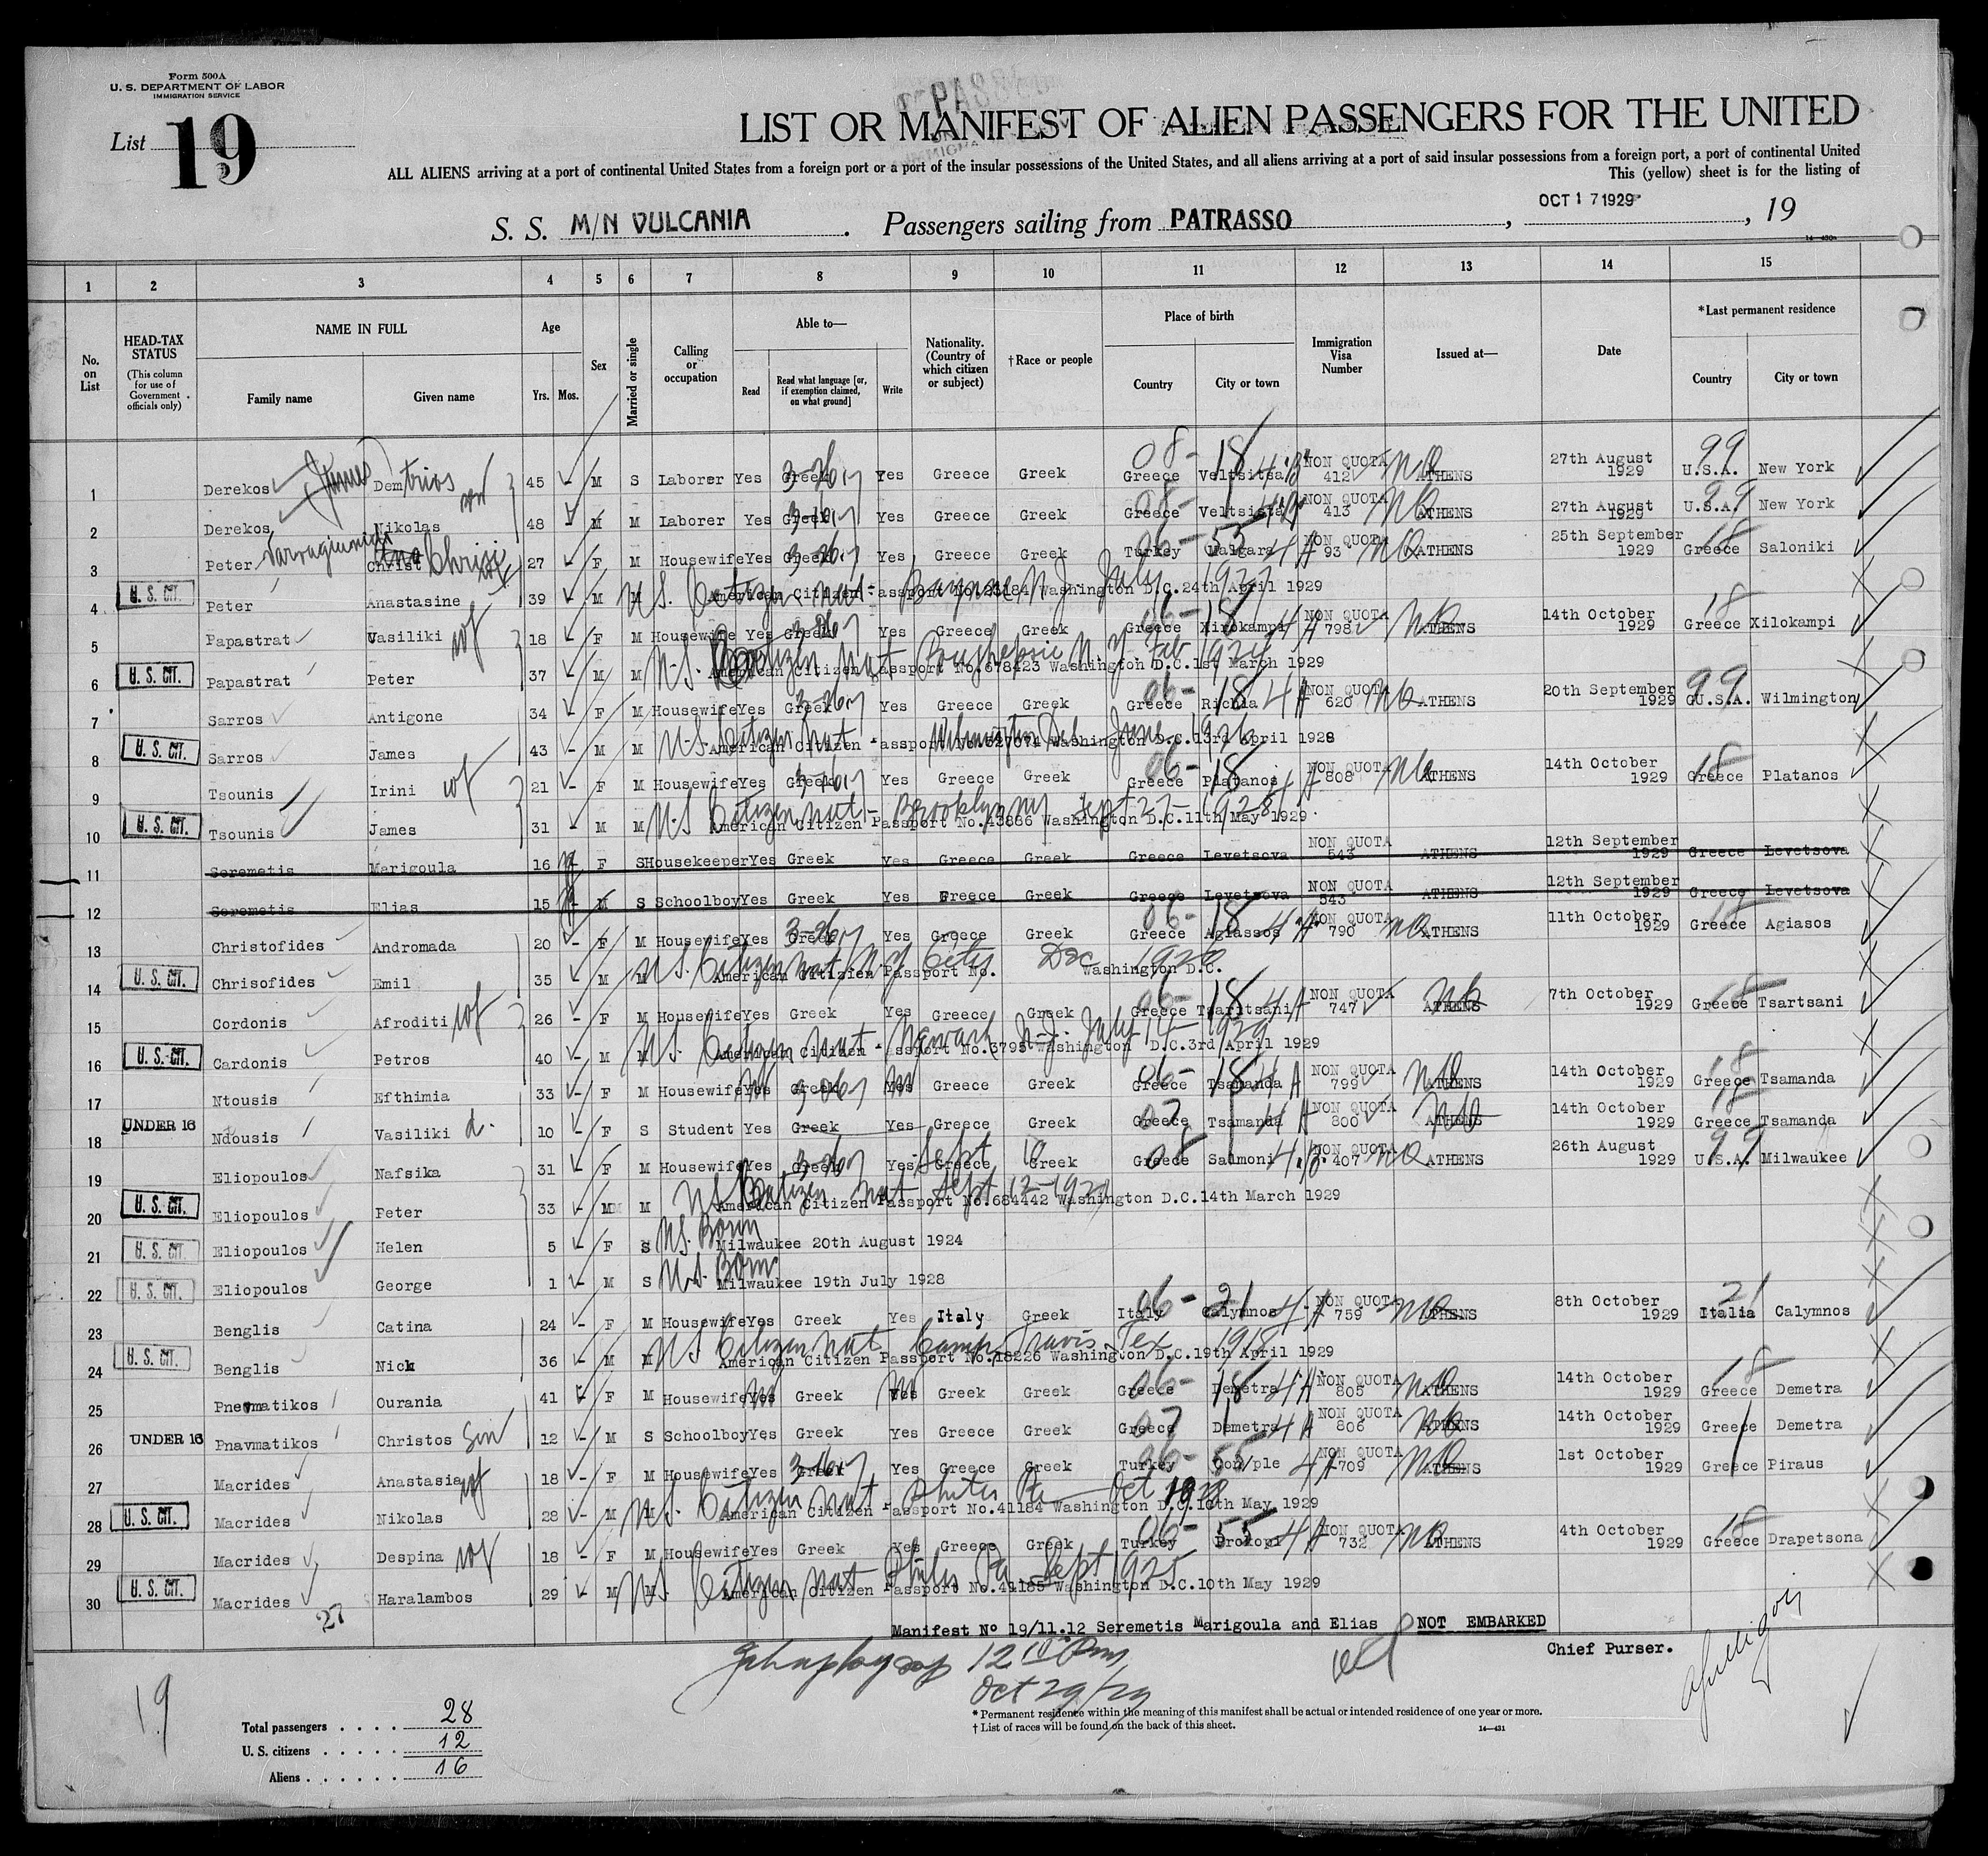 Form 500A
U. S. DEPARTMENT OF LABOR
IMMIGRATION SERVICE
List 19
LIST OR MANIFEST OF ALIEN PASSENGERS FOR THE UNITED
ALL ALIENS arriving at a port of continental United States from a foreign port or a port of the insular possessions of the United States, and all aliens arriving at a port of said insular possessions from a foreign port, a port of continental United
This (yellow) sheet is for the listing of
S. S. M/N VULCANIA . Passengers sailing from PATRASSO , OCT 17 1929 , 19
14—430a
1 2 3 4 5 6 7 8 9 10 11 12 13 14 15
No. on List
HEAD-TAX STATUS (This column for use of Government officials only)
NAME IN FULL Family name Given name
Age Yrs. Mos.
Sex
Married or single
Calling or occupation
Able to— Read Read what language [or, if exemption claimed, on what ground] Write
Nationality. (Country of which citizen or subject)
† Race or people
Place of birth Country City or town
Immigration Visa Number
Issued at—
Date
*Last permanent residence Country City or town
1 Derekos James Demtrios 45 M S Laborer Yes Greek 3-26 Yes Greece Greek 08- 18 Greece Veltsitsa NON QUOTA 412 ATHENS 27th August 1929 99 U.S.A. New York
2 Derekos Nikolas 48 M M Laborer Yes Greek Yes Greece Greek 08- Greece Veltsista NON QUOTA 413 ATHENS 27th August 1929 99 U.S.A. New York
3 Peter Christ 27 F M Housewife Yes Greek Yes Greece Greek 06- 55 Turkey Malgara 4A NON QUOTA 93 ATHENS 25th September 1929 18 Greece Saloniki
4 U. S. CIT. Peter Anastasine 39 M M American Citizen Passport No. 23184 Washington D.C. 24th April 1929 U.S. Citizen nat - Bayonne N.J. July 1927
5 Papastrat Vasiliki wf 18 F M Housewife Yes Greek Yes Greece Greek 06- 18 Greece Xirokampi 4A NON QUOTA 798 ATHENS 14th October 1929 18 Greece Xilokampi
6 U. S. CIT. Papastrat Peter 37 M M American Citizen Passport No. 678423 Washington D.C. 1st March 1929 U.S. Citizen nat N.Y. Feb 1924
7 Sarros Antigone 34 F M Housewife Yes Greek Yes Greece Greek 06- 18 Greece Richia 4A NON QUOTA 620 ATHENS 20th September 1929 99 GU.S.A. Wilmington
8 U. S. CIT. Sarros James 43 M M American Citizen Passport No. 527074 Washington D.C. 13rd April 1928 U.S. Citizen nat Wilmington Del. June 1926
9 Tsounis Irini wf 21 F M Housewife Yes Greek Yes Greece Greek 06- 18 Greece Platanos 4A NON QUOTA 808 ATHENS 14th October 1929 18 Greece Platanos
10 U. S. CIT. Tsounis James 31 M M American Citizen Passport No. 43886 Washington D.C. 11th May 1929 U.S. Citizen nat - Brooklyn NY Sept 27-1928
11 Seremetis Marigoula 16 F S Housekeeper Yes Greek Yes Greece Greek Greece Levetsova NON QUOTA 543 ATHENS 12th September 1929 Greece Levetsova
12 Seremetis Elias 15 M S Schoolboy Yes Greek Yes Greece Greek Greece Levetsova NON QUOTA 543 ATHENS 12th September 1929 Greece Levetsova
13 Christofides Andromada 20 F M Housewife Yes Greek 3-26 Yes Greece Greek 06- 18 Greece Agiassos 4A NON QUOTA 790 ATHENS 11th October 1929 18 Greece Agiasos
14 U. S. CIT. Chrisofides Emil 35 M M American Citizien Passport No. Washington D.C. U.S. Citizen nat N.Y. City Dec
15 Cordonis Afroditi wf 26 F M Housewife Yes Greek Yes Greece Greek 06- 18 Greece Tsaritsani 4A NON QUOTA 747 ATHENS 7th October 1929 18 Greece Tsartsani
16 U. S. CIT. Cardonis Petros 40 M M American Citizen Passport No. 3795 Washington D.C. 3rd April 1929 U.S. Citizen nat - Newark N-J- July 14-1929
17 Ntousis Efthimia 33 F M Housewife Yes Greek Yes Greece Greek 06- 18 Greece Tsamanda 4A NON QUOTA 799 ATHENS 14th October 1929 18 Greece Tsamanda
18 UNDER 16 Ndousis Vasiliki d. 10 F S Student Yes Greek Yes Greece Greek 07 Greece Tsamanda 4A NON QUOTA 800 ATHENS 14th October 1929 18 Greece Tsamanda
19 Eliopoulos Nafsika 31 F M Housewife Yes Greek Yes Greece Greek 08 Greece Salmoni NON QUOTA 407 ATHENS 26th August 1929 99 U.S.A. Milwaukee
20 U. S. CIT. Eliopoulos Peter 33 M M American Citizen Passport No. 684442 Washington D.C. 14th March 1929 U.S. Citizen nat Sept 12-1921
21 U. S. CIT. Eliopoulos Helen 5 F S U.S. Born Milwaukee 20th August 1924
22 U. S. CIT. Eliopoulos George 1 M S U.S. Born Milwaukee 19th July 1928
23 Benglis Catina 24 F M Housewife Yes Greek Yes Italy Greek 06- 21 Italy Calymnos 4A NON QUOTA 759 ATHENS 8th October 1929 21 Italia Calymnos
24 U. S. CIT. Benglis Nick 36 M M American Citizen Passport No. 18226 Washington D.C. 19th April 1929 U.S. Citizen nat Camp Travis, Tex 1918
25 Pnevmatikos Ourania 41 F M Housewife Yes Greek Yes Greek Greek 06- 18 Greece Demetra 4A NON QUOTA 805 ATHENS 14th October 1929 18 Greece Demetra
26 UNDER 16 Pnavmatikos Christos Son 12 M S Schoolboy Yes Greek Yes Greece Greek 07 Greece Demetra 4A NON QUOTA 806 ATHENS 14th October 1929 Greece Demetra
27 Macrides Anastasia wf 18 F M Housewife Yes Greek Yes Greece Greek 06- 55 Turkey Con/ple 4A NON QUOTA 709 ATHENS 1st October 1929 Greece Piraus
28 U. S. CIT. Macrides Nikolas 28 M M American Citizen Passport No. 41184 Washington D.C. 10th May 1929 U.S. Citizen nat Phila Pa Oct
29 Macrides Despina wf 18 F M Housewife Yes Greek Yes Greece Greek 06- 55 Turkey Prokopi 4A NON QUOTA 732 ATHENS 4th October 1929 18 Greece Drapetsona
30 U. S. CIT. Macrides Haralambos 29 M M American Citizen Passport No. 41185 Washington D.C. 10th May 1929 U.S. Citizen nat Phila Pa Sept 1925
27
Manifest No 19/11.12 Seremetis Marigoula and Elias NOT EMBARKED
Chief Purser.
12
Oct 29/29
19
Total passengers . . . . 28
U. S. citizens . . . . . 12
Aliens . . . . . . 16
* Permanent residence within the meaning of this manifest shall be actual or intended residence of one year or more.
† List of races will be found on the back of this sheet.
14—431